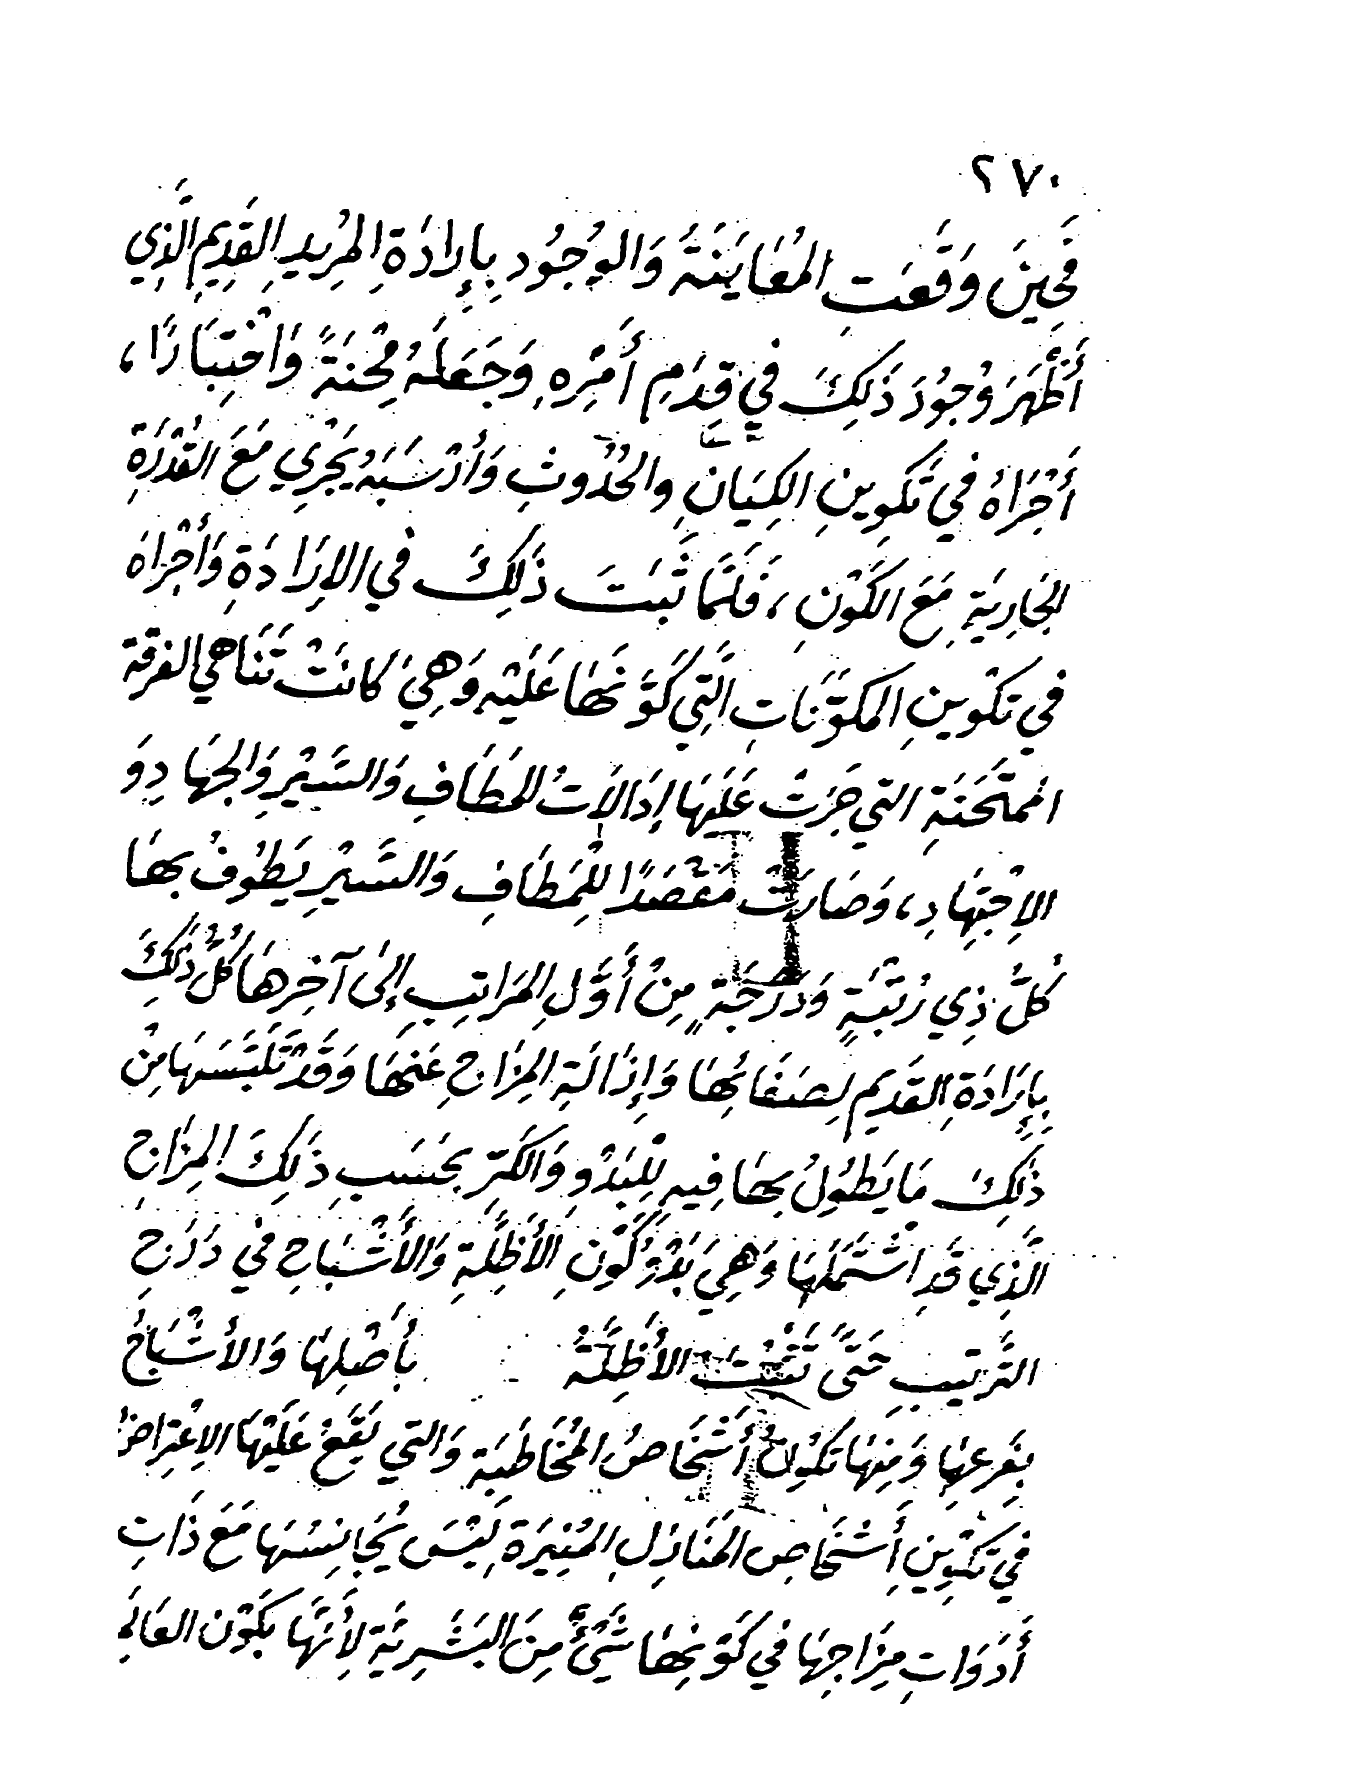 ٢٧٠
فَحِينَ وَقَعَتِ المُعَايَنَةُ وَالوُجُودِ بِإِرَادَةِ المُرِيدِ القَدِيمِ الَّذِي
أَظْهَرَ وُجُودَ ذَلِكَ فِي قِدَمِ أَمْرِهِ وَجَعَلَهُ مِحْنَةً وَاخْتِبَارًا،
أَجْرَاهُ فِي تَكْوِينِ الكِيَانِ والحُدُوثِ يَجْرِي مَعَ القُدْرَةِ
الجَارِيَةِ مَعَ الكَوْنِ، فَلَمَّا ثَبَتَ ذَلِكَ فِي الإِرَادَةِ وَأَجْرَاهُ
فِي تَكْوِينِ المكَوَّنَاتِ الَّتِي كَوَّنَهَا عَلَيْهِ وَهِيَ كَانَتْ تَنَاهي الفرقة
الممْتَحَنَةِ التي جَرَتْ عَلَيهَا إِدَالاَتُ المَطَافِ وَالسَّيْرِ وَالجِهَادِ وَ
الاِجْتِهَادِ، وَصَارَتْ مَقْصَدًا لِلْمَطَافِ وَالسَّيْرِ يَطُوفُ بِهَا
كُلَّ ذِي رُتْبَةٍ وَدَرَجَةٍ مِنْ أَوَّلِ المَرَاتِبِ إِلَى آخِرِهَا كُلُّ ذَلِكَ
بِإِرَادَةِ القَدِيمِ لِصَفَائِهَا وَإِزَالَةِ المِزَاجِ عَنهَا وَقَدْ تَلَبَّسَهَا مِنْ
ذَلِكَ مَا يَطُولُ بِهَا فِيهِ لِلْبَدْوِ وَالكَرِّ بِحَسَبِ ذَلِكَ المِزَاجِ
الَّذِي قَدِ اشْتَمَلَهَا وَهِيَ بَدْوُ كَوْنِ الأَظِلَّةِ وَالأَشْبَاحِ فِي دَرَجِ
التَّرتِيبِ حَتَّى الأَظِلَّةُ بِأَصْلِهَا وَالأَشْبَاحُ
بِفَرعِهَا وَمِنهَا تَكُونُ أَشْخَاصُ المُخَاطَبَةِ وَالتي يَقَعُ عَلَيْهَا الاِعْتِرَاضُ
فِي تَكْوِينِ أَشْخَاصِ المَنَازِلِ المُنِيرَةِ لَيْسَ يُجَانِسُهَا مَعَ ذَاتِ
أَدَوَاتِ مِزَاجِهَا فِي كَوْنِهَا شَيْئٌ مِنَ البَشَرِيَّةِ لِأَنَّهَا بِكَوْنِ العَالَمِ